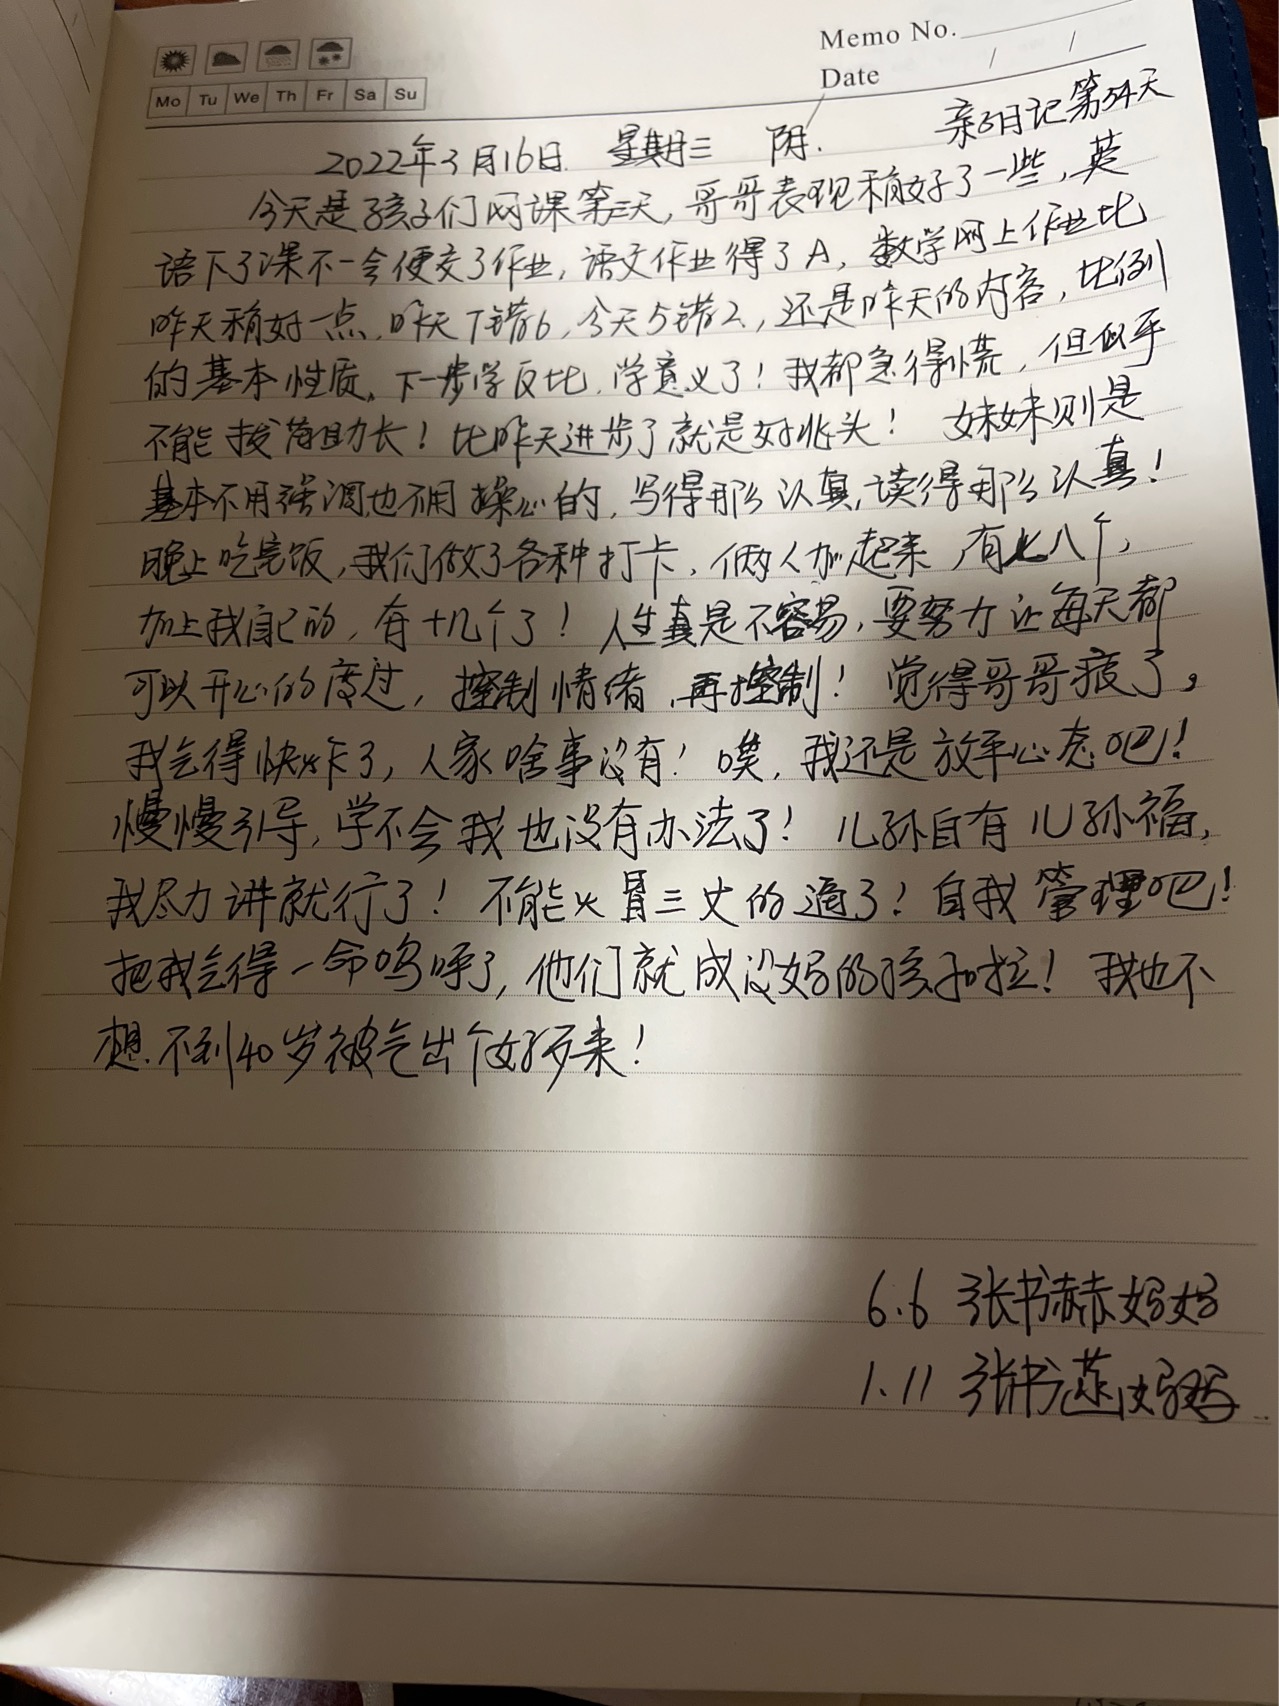 Memo No.
Mo Tu We Th Fr Sa Su
Date / /
亲子日记第54天
2022年3月16日. 星期三 阴.
今天是孩子们网课第三天,哥哥表现稍好了一些,英
语下了课不一会便交了作业,语文作业得了A,数学网上作业比
昨天稍好一点,昨天7错6,今天5错2,还是昨天的内容,比例
的基本性质,下一步学反比,学意义了!我都急得慌,但似乎
不能拔苗助长!比昨天进步了就是好兆头! 妹妹则是
基本不用强调也不用操心的,写得那么认真,读得那么认真!
晚上吃完饭,我们做了各种打卡,俩人加起来有七八个,
加上我自己的,有十几个了!人生真是不容易,要努力让每天都
可以开心的度过,控制情绪,再控制! 觉得哥哥疲了,
我气得快炸了,人家啥事没有!唉,我还是放平心态吧!
慢慢引导,学不会我也没有办法了! 儿孙自有儿孙福,
我尽力讲就行了!不能火冒三丈的过了!自我管理吧!
把我气得一命呜呼了,他们就成没妈的孩子啦!我也不
想不到40岁被气出个好歹来!
6.6 张书赫妈妈
1.11 张书燕妈妈